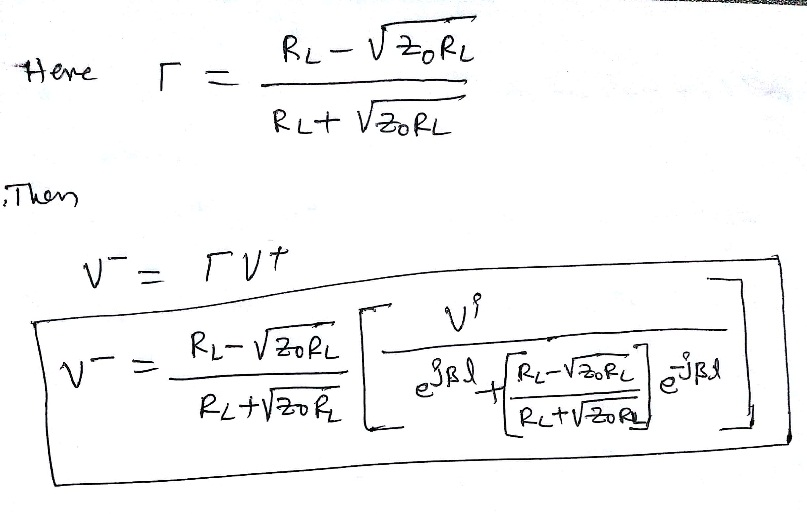 Here Γ = \frac{R_L - \sqrt{Z_0 R_L}}{R_L + \sqrt{Z_0 R_L}}
Then
V^- = Γ V^+
V^- = \frac{R_L - \sqrt{Z_0 R_L}}{R_L + \sqrt{Z_0 R_L}} \left[ \frac{V^i}{e^{jβl} + \left[ \frac{R_L - \sqrt{Z_0 R_L}}{R_L + \sqrt{Z_0 R_L}} \right] e^{-jβl}} \right]